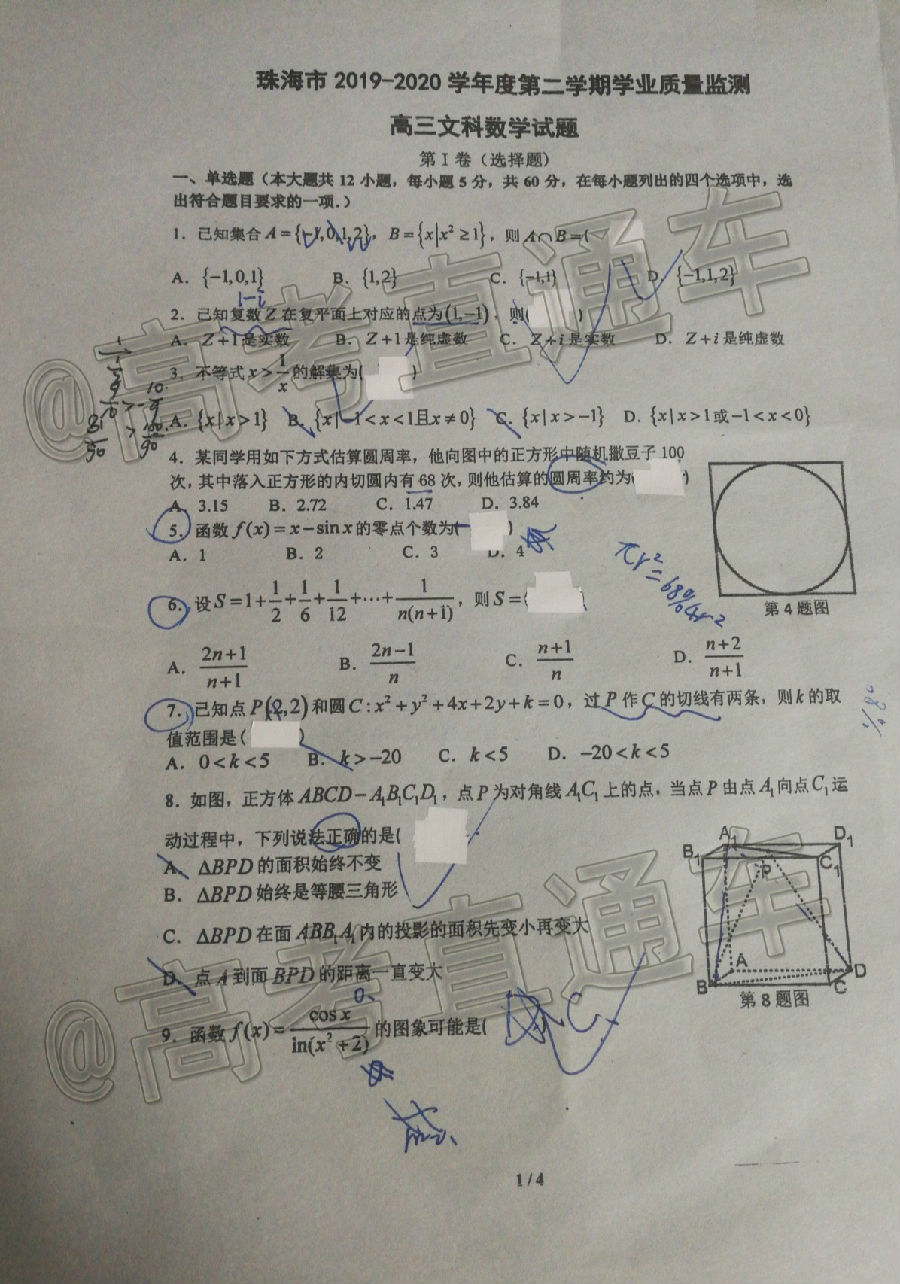 珠海市 2019-2020 学年度第二学期学业质量监测
高三文科数学试题
第 I 卷（选择题）
一、单选题（本大题共 12 小题，每小题 5 分，共 60 分，在每小题列出的四个选项中，选
出符合题目要求的一项.）
1. 已知集合 A={-1,0,1,2}，B={x|x²≥1}，则 A∩B=(
A. {-1,0,1} B. {1,2} C. {-1,1} D. {-1,1,2}
1-i
2. 已知复数 Z 在复平面上对应的点为(1,-1)，则( )
A. Z+1是实数 B. Z+1是纯虚数 C. Z+i是实数 D. Z+i是纯虚数
3. 不等式 x>1/x 的解集为( )
A. {x|x>1} B. {x|-1<x<1且x≠0} C. {x|x>-1} D. {x|x>1或-1<x<0}
4. 某同学用如下方式估算圆周率，他向图中的正方形中随机撒豆子 100
次，其中落入正方形的内切圆内有 68 次，则他估算的圆周率约为( )
A. 3.15 B. 2.72 C. 1.47 D. 3.84
5. 函数 f(x)=x-sinx 的零点个数为( )
A. 1 B. 2 C. 3 D. 4
πr²=68%4r²
第 4 题图
6. 设 S=1+1/2+1/6+1/12+⋯+1/n(n+1)，则 S=( )
A. (2n+1)/(n+1) B. (2n-1)/n C. (n+1)/n D. (n+2)/(n+1)
7. 已知点 P(2,2) 和圆 C:x²+y²+4x+2y+k=0，过 P 作 C 的切线有两条，则 k 的取
值范围是( )
A. 0<k<5 B. k>-20 C. k<5 D. -20<k<5
8. 如图，正方体 ABCD-A₁B₁C₁D₁，点 P 为对角线 A₁C₁ 上的点，当点 P 由点 A₁ 向点 C₁ 运
动过程中，下列说法正确的是(
A. △BPD 的面积始终不变
B. △BPD 始终是等腰三角形
C. △BPD 在面 ABB₁A₁ 内的投影的面积先变小再变大
D. 点 A 到面 BPD 的距离一直变大
A₁ D₁
B₁ C₁
P
A D
B C
第 8 题图
9. 函数 f(x)=cosx/ln(x²+2) 的图象可能是(
C
1 / 4
@高考直通车
@高考直通车